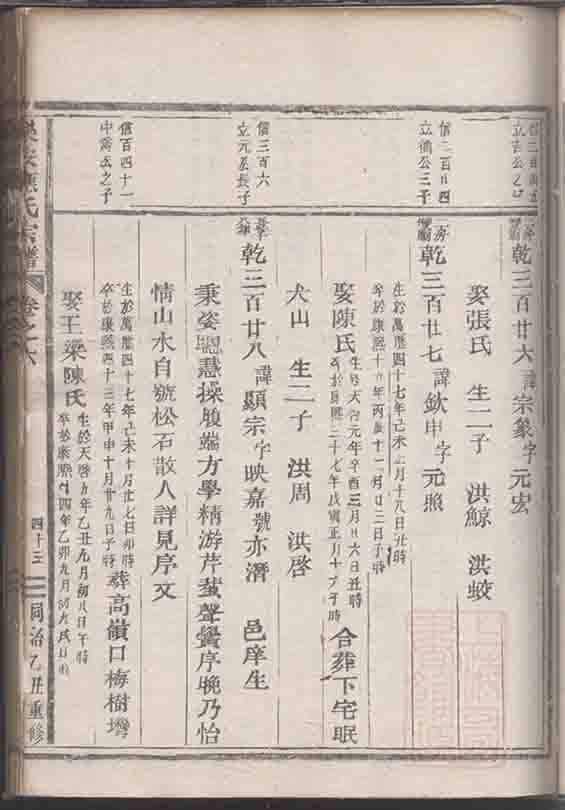 信三百
立
乾三百廿六諱宗彖字元宏
娶張氏 生二子 洪鯨 洪蛟
信三百廿四
立備公三子
乾三百廿七諱欽申字元照
生於萬曆四十七年己未 月十八日丑時
卒於康熙十 年丙 十二月廿三日子時
娶陳氏
生於天啟元年辛酉三月廿六日丑時
卒於康熙三十七年戊寅正月十 子時
合葬下宅眠
犬山 生二子 洪周 洪啓
信三百六
立元公長子
乾三百廿八諱顯宗字映嘉號亦潛 邑庠生
秉姿聰慧操履端方學精游芹蜚聲黌序晚乃怡
情山水自號松石散人詳見序文
信百四十一
中 公之子
生於萬曆四十七年己未十月廿七日卯時
卒於康熙四十三年甲申十月廿九日子時
葬高嶺口梅樹灣
娶王梁陳氏
生於天啓五年乙丑九月初八日午時
卒於康熙十四年乙卯九月初九戌日時
樂安 氏宗譜 卷之六 四十三 同治乙丑重修